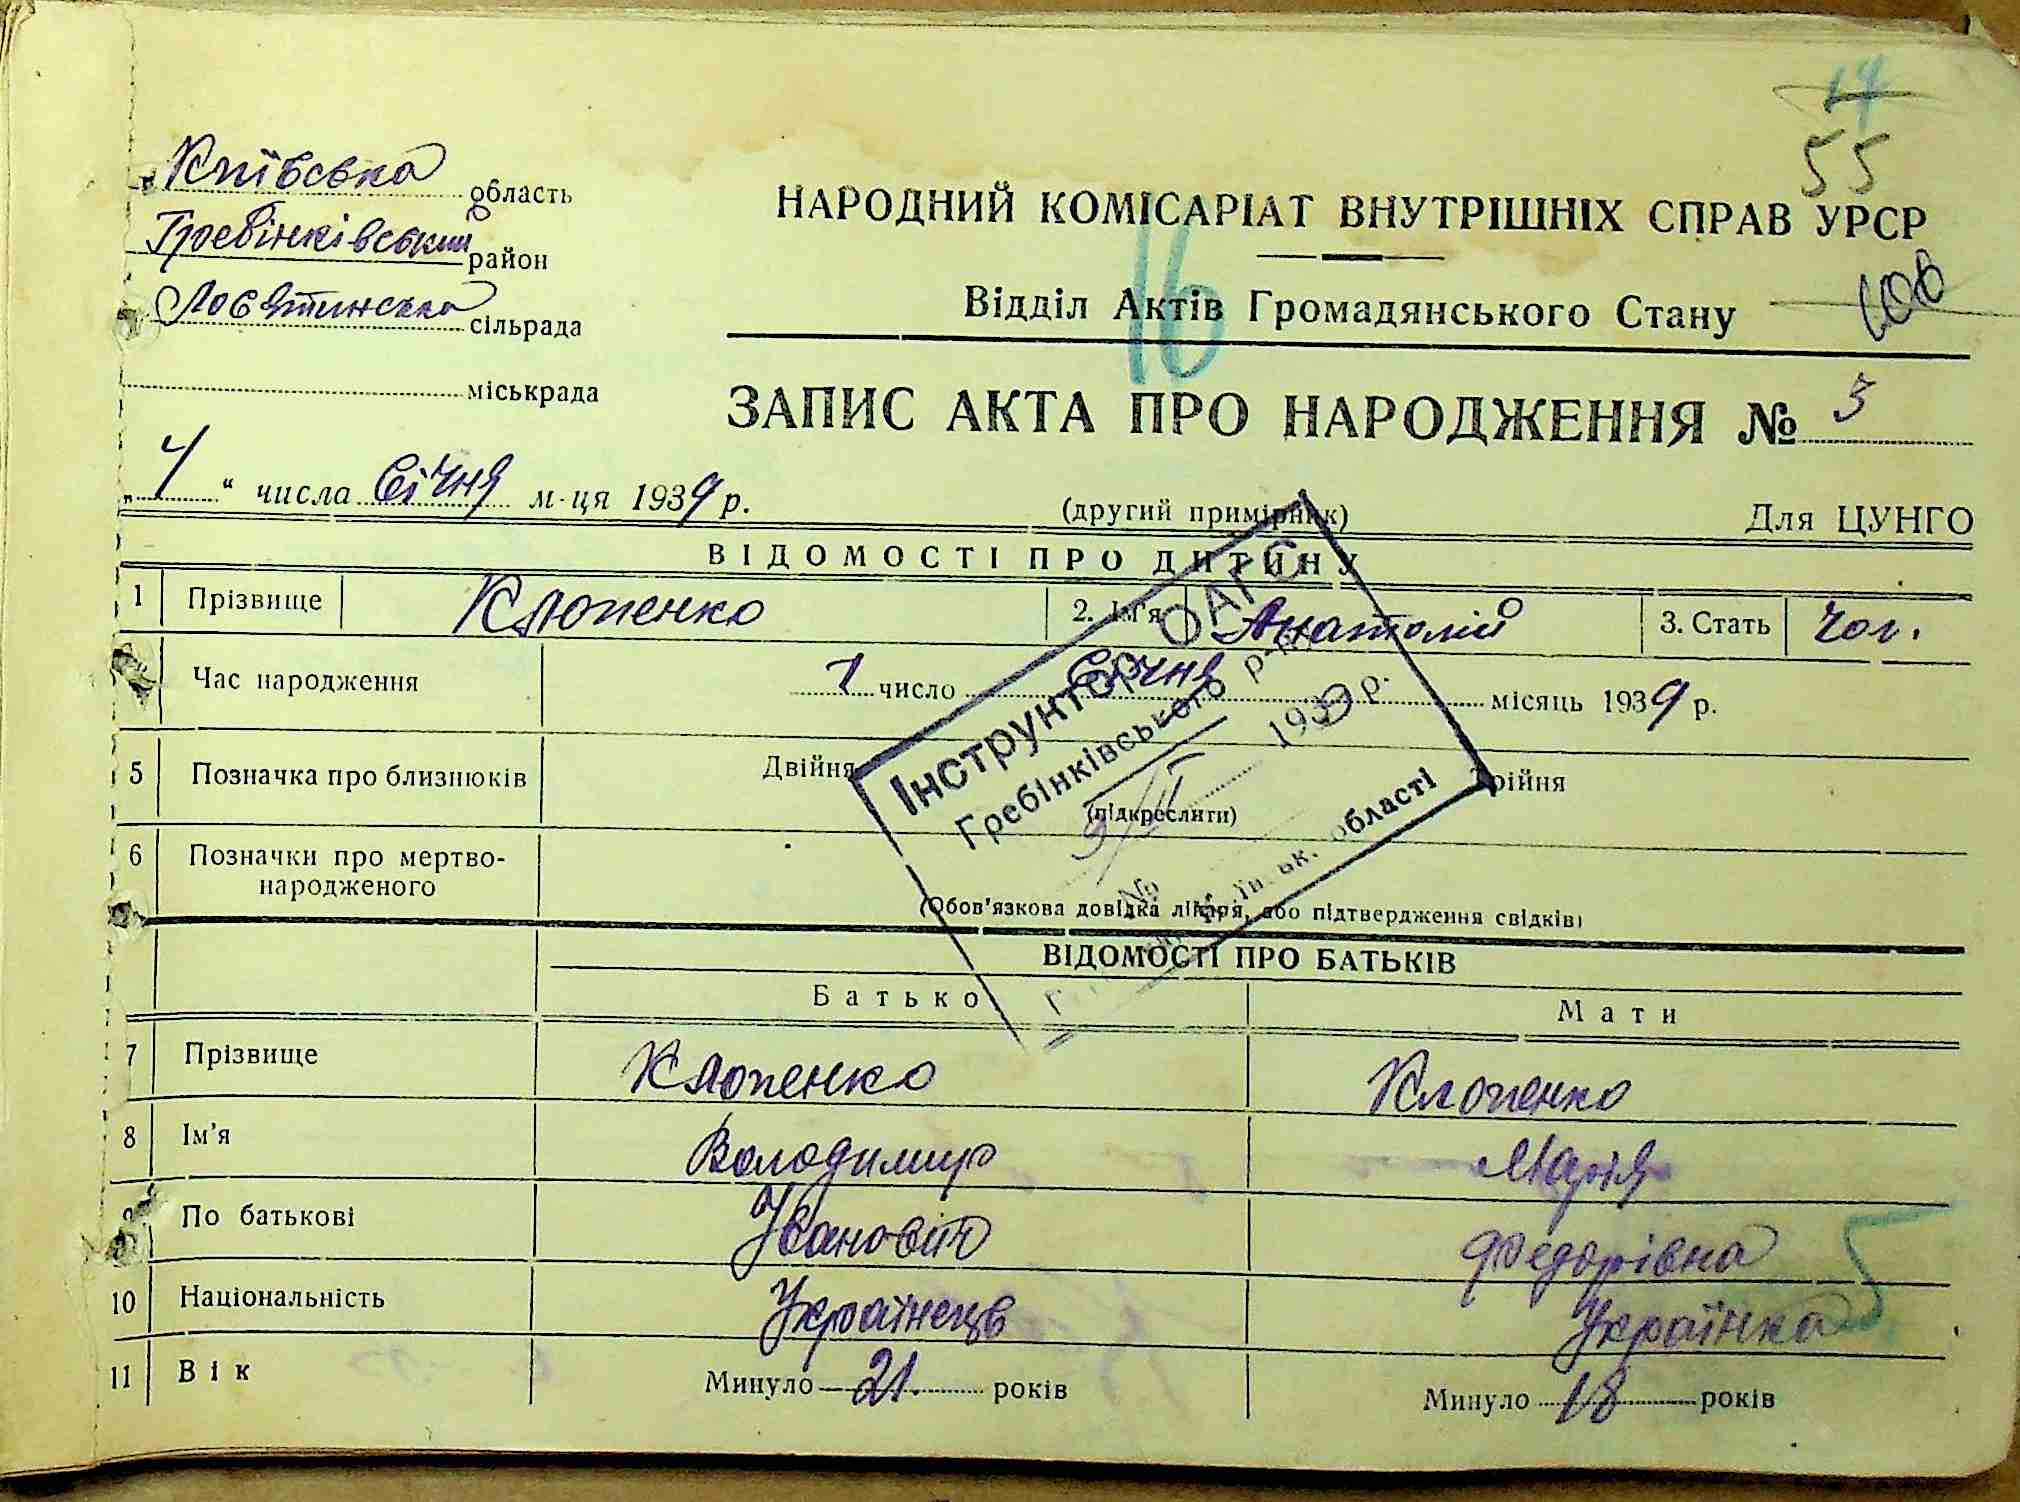 14
55
Київська область
Гребінківський район
сільрада
міськрада
НАРОДНИЙ КОМІСАРІАТ ВНУТРІШНІХ СПРАВ УРСР
16
Відділ Актів Громадянського Стану
100
ЗАПИС АКТА ПРО НАРОДЖЕННЯ № 3
„4“ числа Січня м-ця 1939 р.
(другий примірник)
Для ЦУНГО
ВІДОМОСТІ ПРО ДИТИНУ
1 Прізвище Клопенко 2. Ім'я Анатолій 3. Стать чол.
Час народження 1 число Січня місяць 1939 р.
Інструктор ОАГС
Гребінківського р-ну
1939 р.
№
області
5 Позначка про близнюків Двійня Трійня
(підкреслити)
6 Позначки про мертво-
народженого
(Обов'язкова довідка лікаря, або підтвердження свідків)
ВІДОМОСТІ ПРО БАТЬКІВ
Батько Мати
7 Прізвище Клопенко Клопенко
8 Ім'я Володимир Марія
9 По батькові Іванович Федорівна
5
10 Національність Українець Українка
11 Вік Минуло 21. років Минуло 18 років